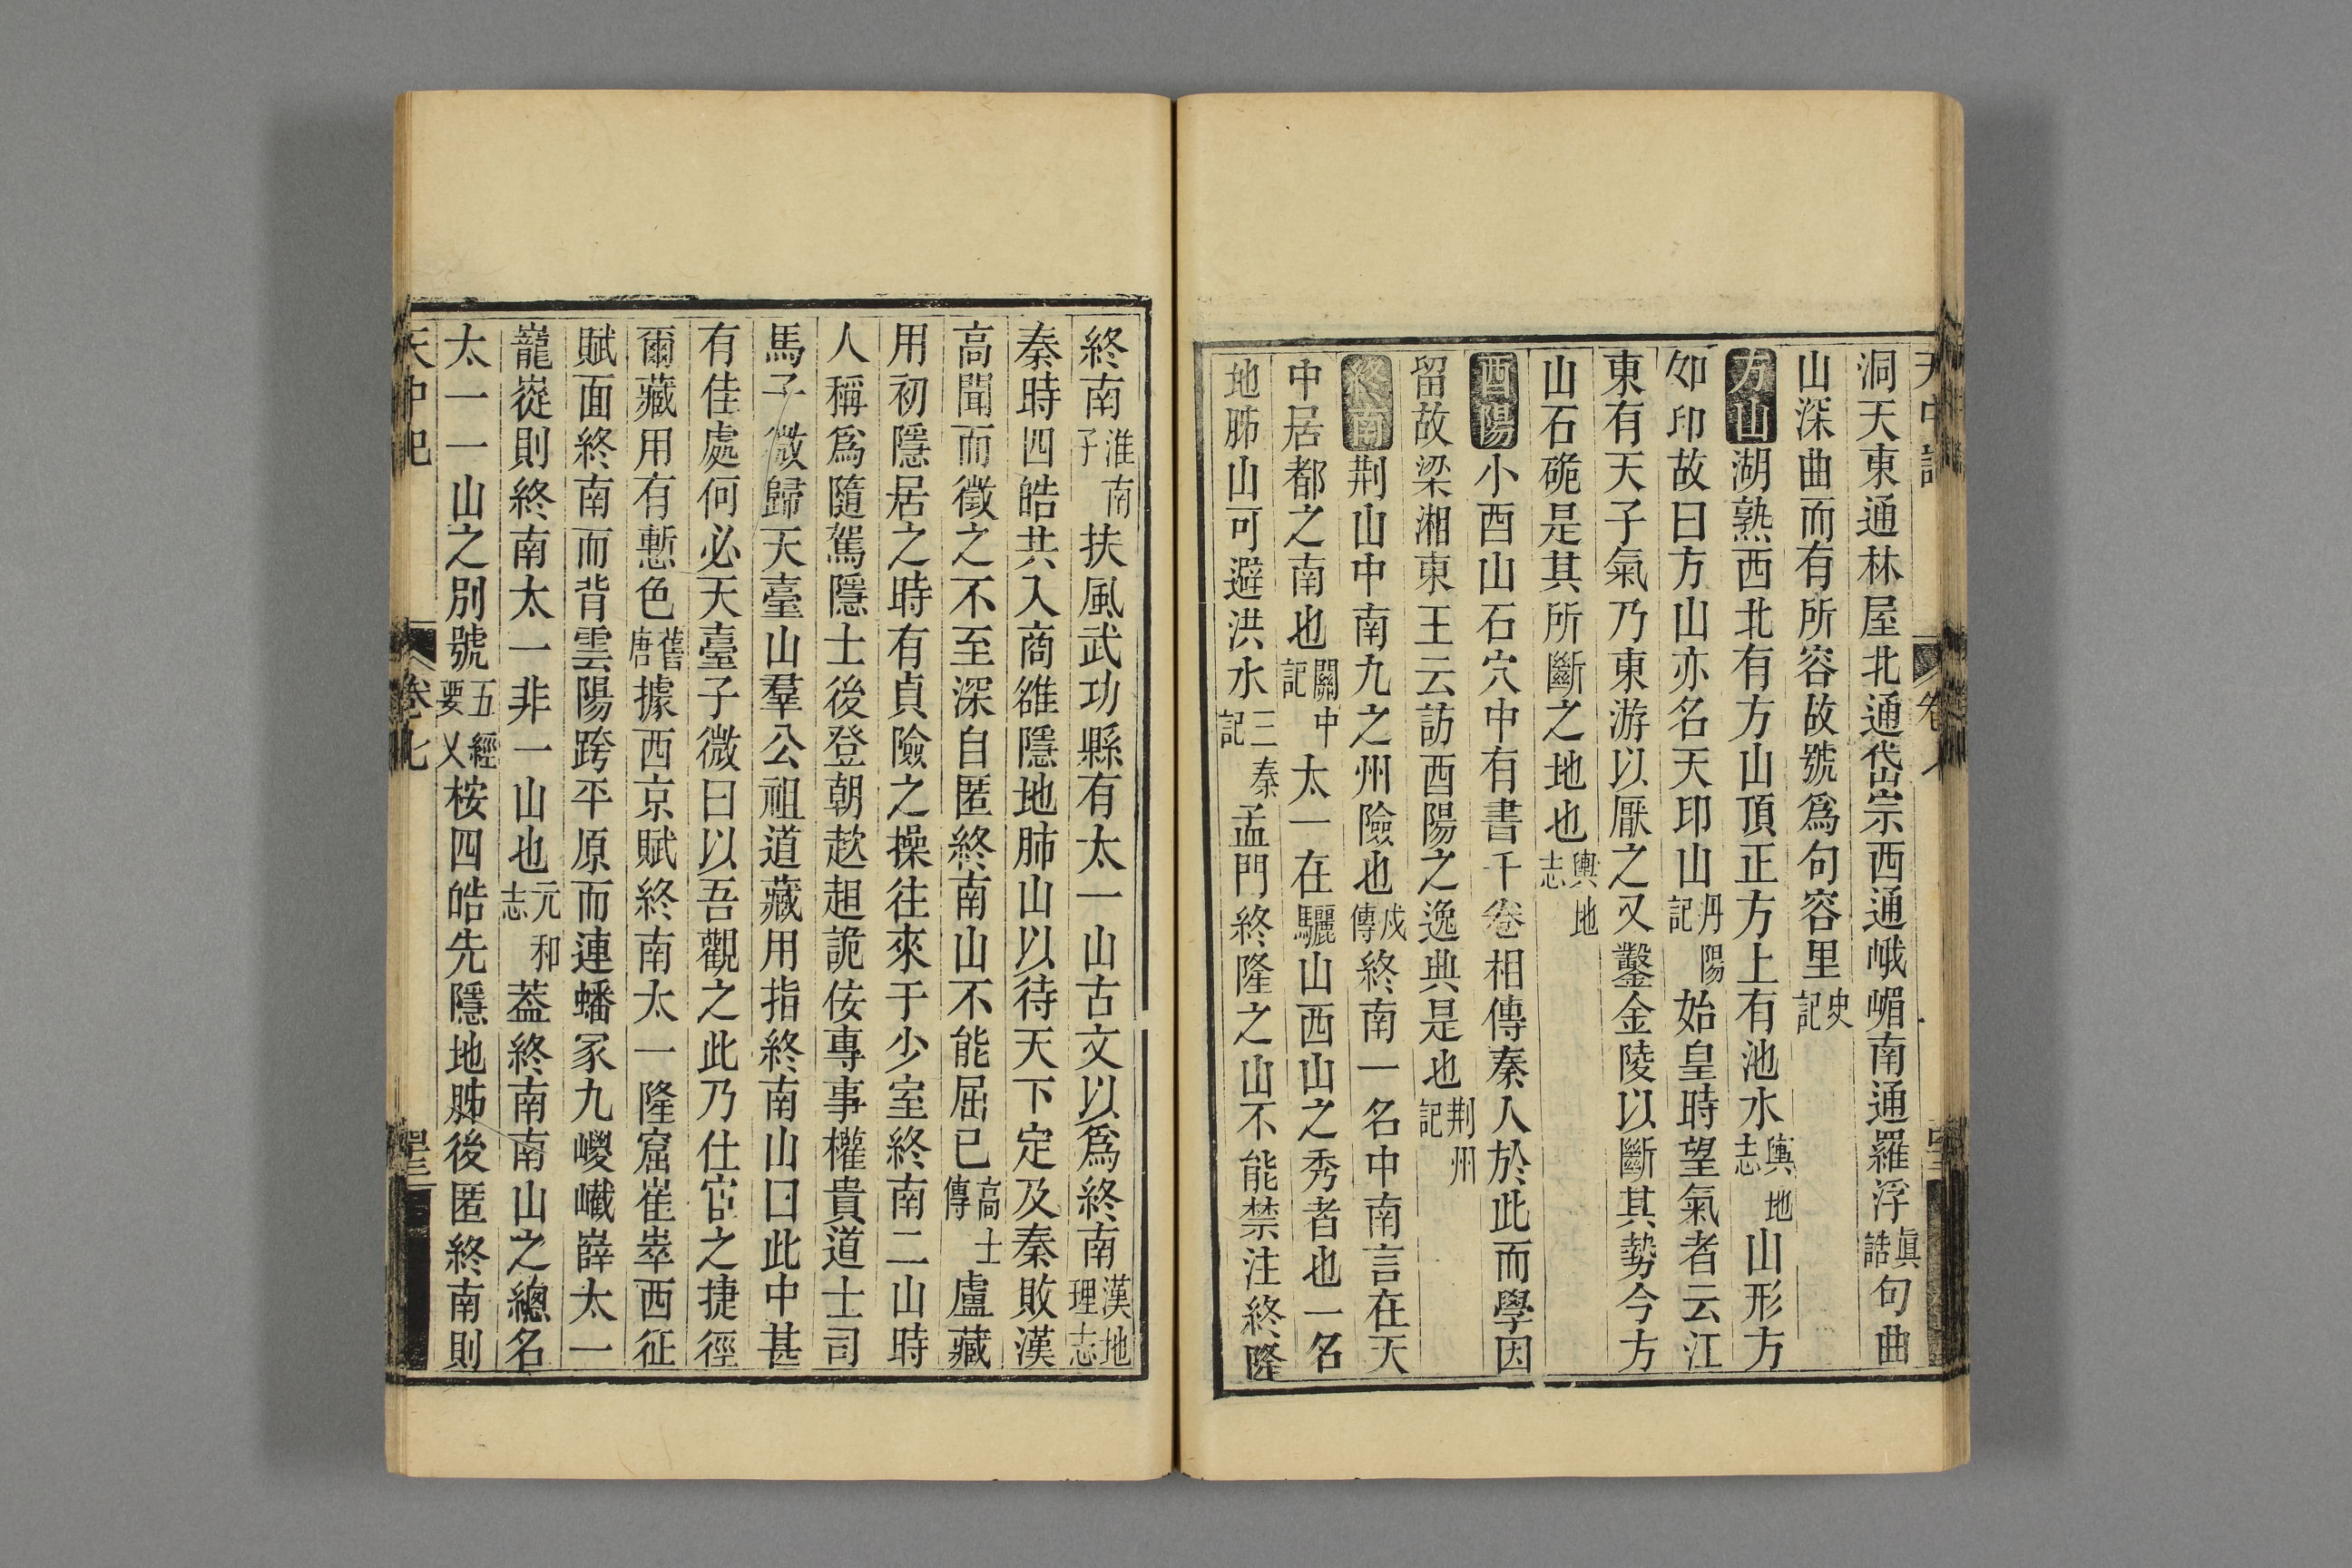 洞天東通林屋北通岱宗西通峨嵋南通羅浮眞誥句曲
山深曲而有所容故號爲句容里史記
方山湖熟西北有方山頂正方上有池水輿地志山形方
如印故曰方山亦名天印山丹陽記始皇時望氣者云江
東有天子氣乃東游以厭之又鑿金陵以斷其勢今方
山石硊是其所斷之地也輿地志
酉陽小酉山石穴中有書千卷相傳秦人於此而學因
留故梁湘東王云訪酉陽之逸典是也荆州記
終南荆山中南九之州險也戍傳終南一名中南言在天
中居都之南也關中記太一在驪山西山之秀者也一名
地肺山可避洪水三秦記孟門終隆之山不能禁注終隆
終南淮南子扶風武功縣有太一山古文以爲終南漢地理志
秦時四皓共入商雒隱地肺山以待天下定及秦敗漢
高聞而徵之不至深自匿終南山不能屈已高士傳盧藏
用初隱居之時有貞險之操往來于少室終南二山時
人稱爲隨駕隱士後登朝趑趄詭佞專事權貴道士司
馬子微歸天臺山羣公祖道藏用指終南山曰此中甚
有佳處何必天臺子微曰以吾觀之此乃仕宦之捷徑
爾藏用有慙色舊唐據西京賦終南太一隆窟崔崒西征
賦面終南而背雲陽跨平原而連蟠冢九嵕巀嶭太一
巃嵸則終南太一非一山也元和志蓋終南南山之總名
太一一山之別號五經要乂桉四皓先隱地肺後匿終南則
天中記 卷七